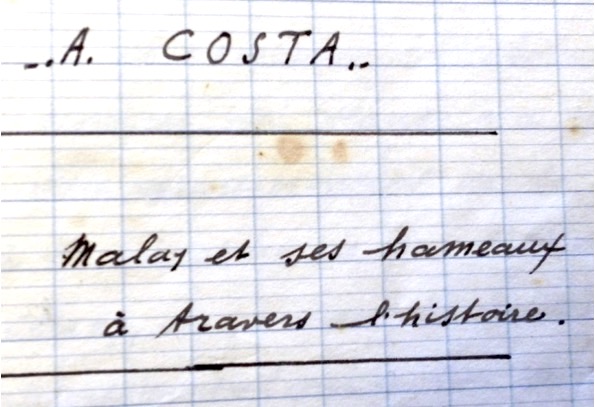 _.. A. COSTA..
Malay et ses hameaux
à travers l'histoire.